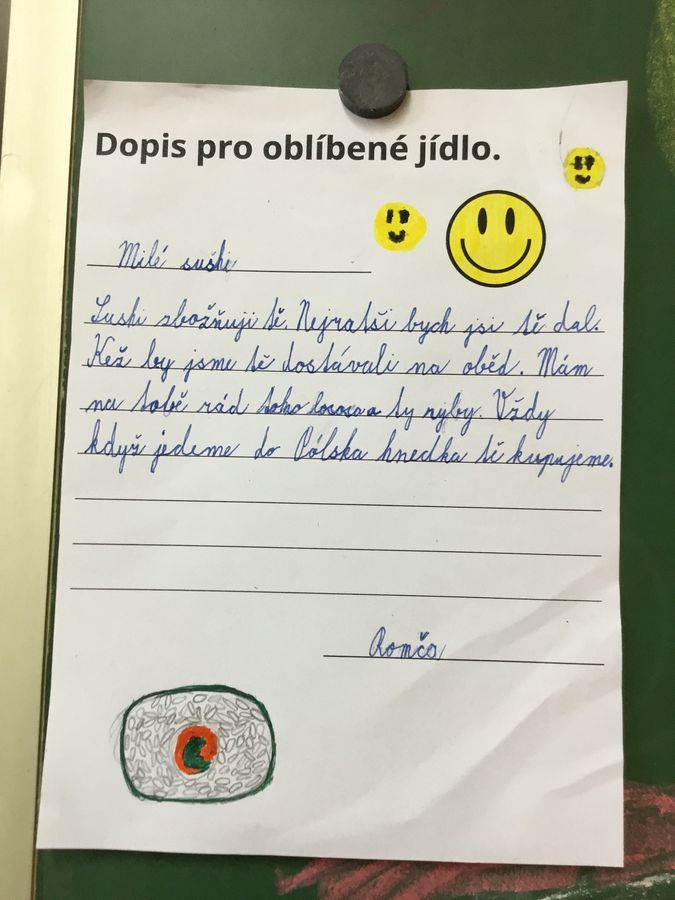 Dopis pro oblíbené jídlo.
Milé sushi
Sushi zbožňuji tě. Nejratši bych jsi tě dal.
Kéž by jsme tě dostávali na oběd. Mám
na tobě rád toho lososa a ty ryby. Vždy
když jedeme do Pólska hnedka tě kupujeme.
Romča